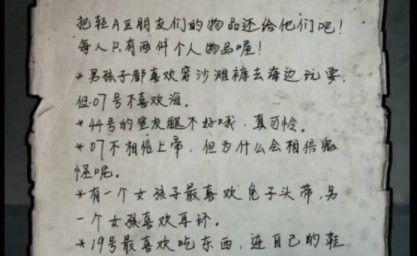 把轻A豆朋友们的物品还给他们吧!
每人只有两件个人物品喔!
*男孩子都喜欢穿沙滩裤去海边玩耍,
但07号不喜欢海。
*44号的室友腿不好哦,真可怜。
*07不相信上帝,但为什么会相信鬼
怪呢。
*有一个女孩子最喜欢兔子头带,另
一个女孩喜欢耳饰。
*19号最喜欢吃东西,连自己的鞋